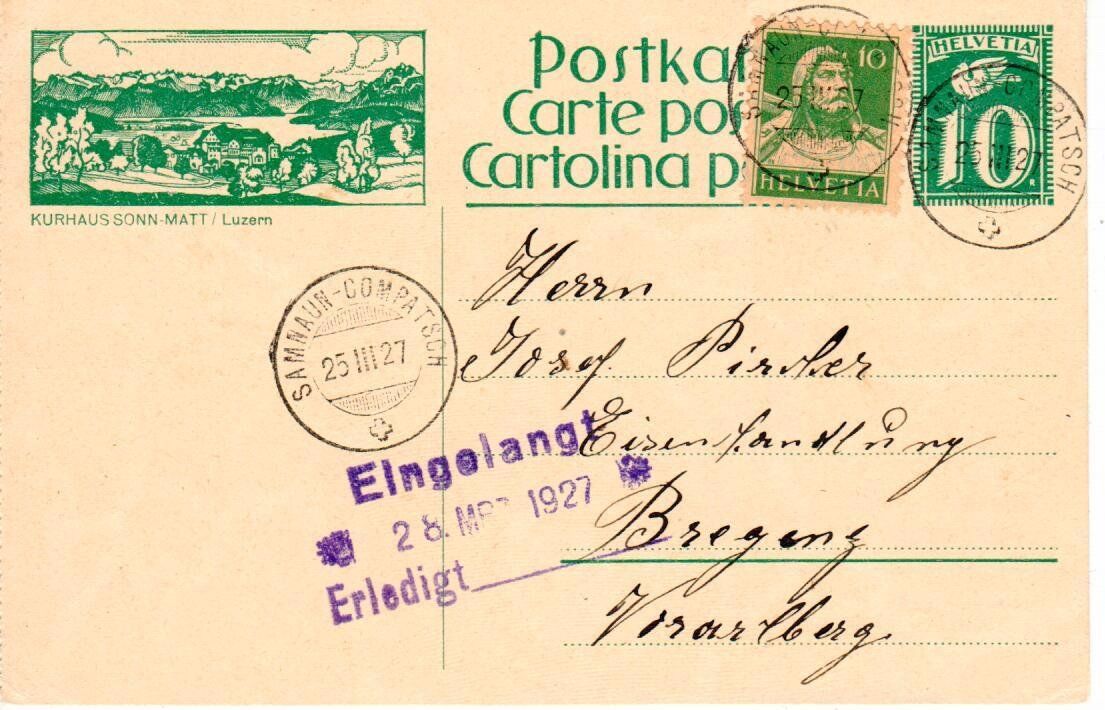 KURHAUS SONN-MATT / Luzern
Postkar
Carte pos
Cartolina p
10
HELVETIA
HELVETIA
10
SAMNAUN-COMPATSCH
25 III 27
SAMNAUN-COMPATSCH
25 III 27
SAMNAUN-COMPATSCH
25 III 27
Herrn
Josef Pircher
Eisenhandlung
Bregenz
Vorarlberg
Eingelangt
28. MRZ 1927
Erledigt